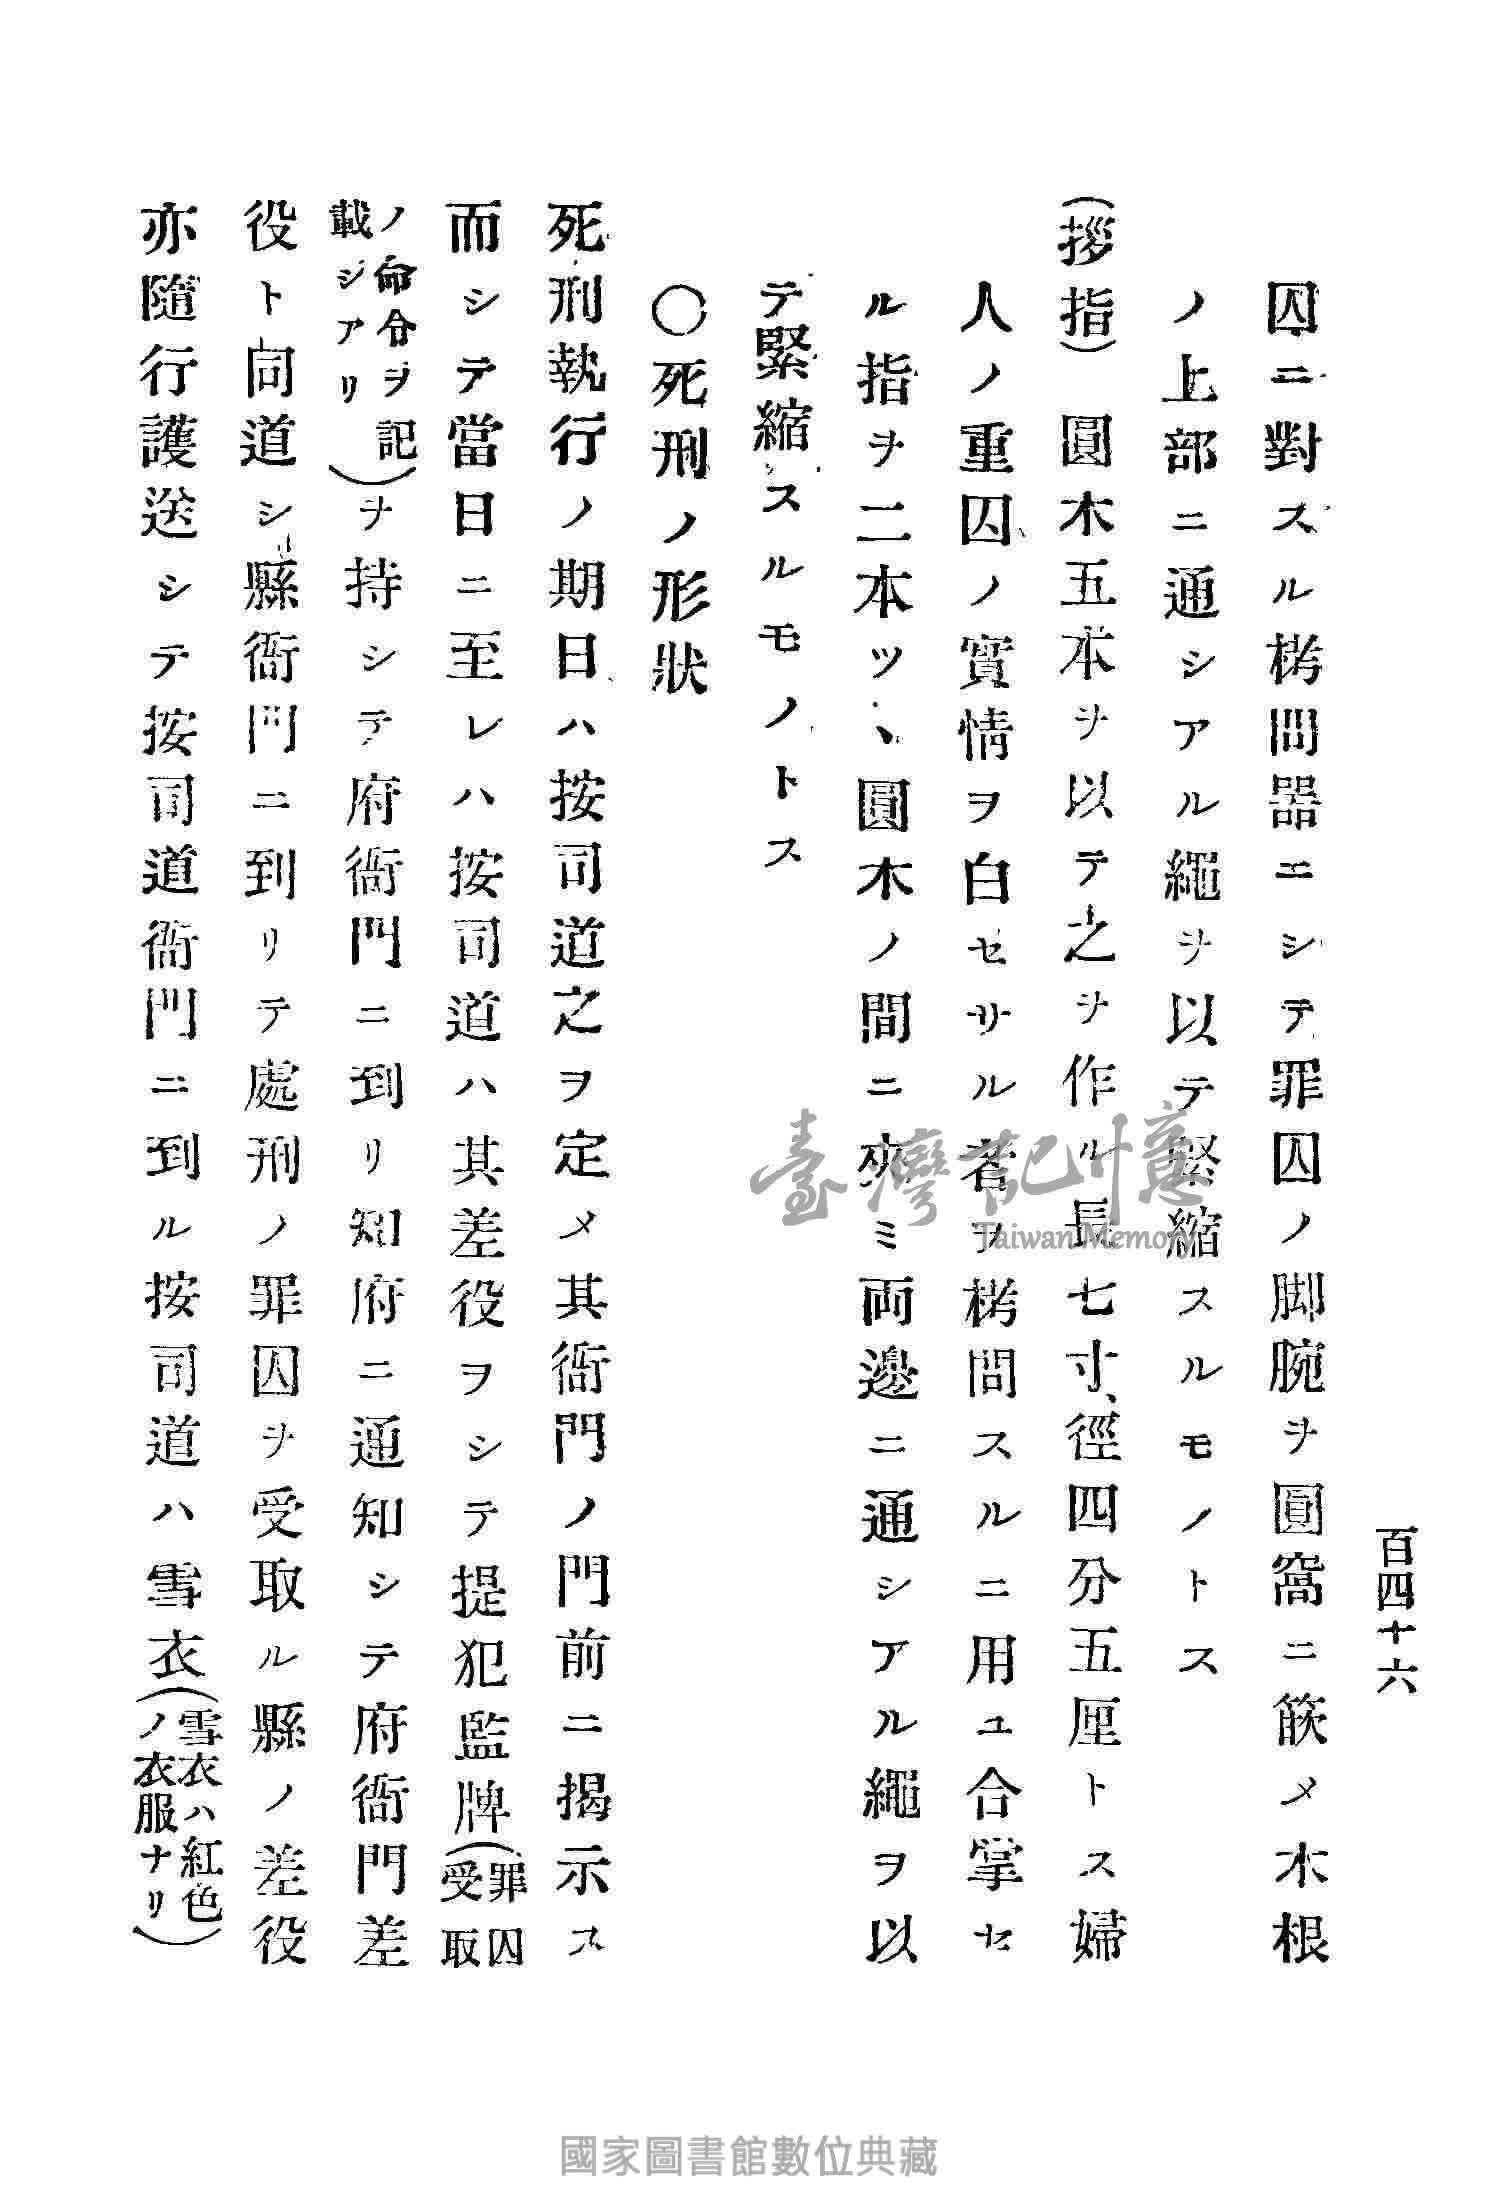 百四十六
囚ニ對スル栲問器ニシテ罪囚ノ脚腕ヲ圓窩ニ篏メ木根
ノ上部ニ通シアル繩ヲ以テ緊縮スルモノトス
(拶指) 圓木五本ヲ以テ之ヲ作ル長七寸、徑四分五厘トス婦
人ノ重囚ノ實情ヲ白セサル者ヲ栲問スルニ用ユ合掌セ
ル指ヲ二本ツヽ圓木ノ間ニ夾ミ両邊ニ通シアル繩ヲ以
テ緊縮スルモノトス
〇死刑ノ形狀
死刑執行ノ期日ハ按司道之ヲ定メ其衙門ノ門前ニ揭示ス
而シテ當日ニ至レハ按司道ハ其差役ヲシテ提犯監牌(罪囚受取
ノ命令ヲ記載シアリ)ヲ持シテ府衙門ニ到リ知府ニ通知シテ府衙門差
役ト同道シ縣衙門ニ到リテ處刑ノ罪囚ヲ受取ル縣ノ差役
亦隨行護送シテ按司道衙門ニ到ル按司道ハ雪衣(雪衣ハ紅色ノ衣服ナリ)
臺灣記憶
Taiwan Memory
國家圖書館數位典藏